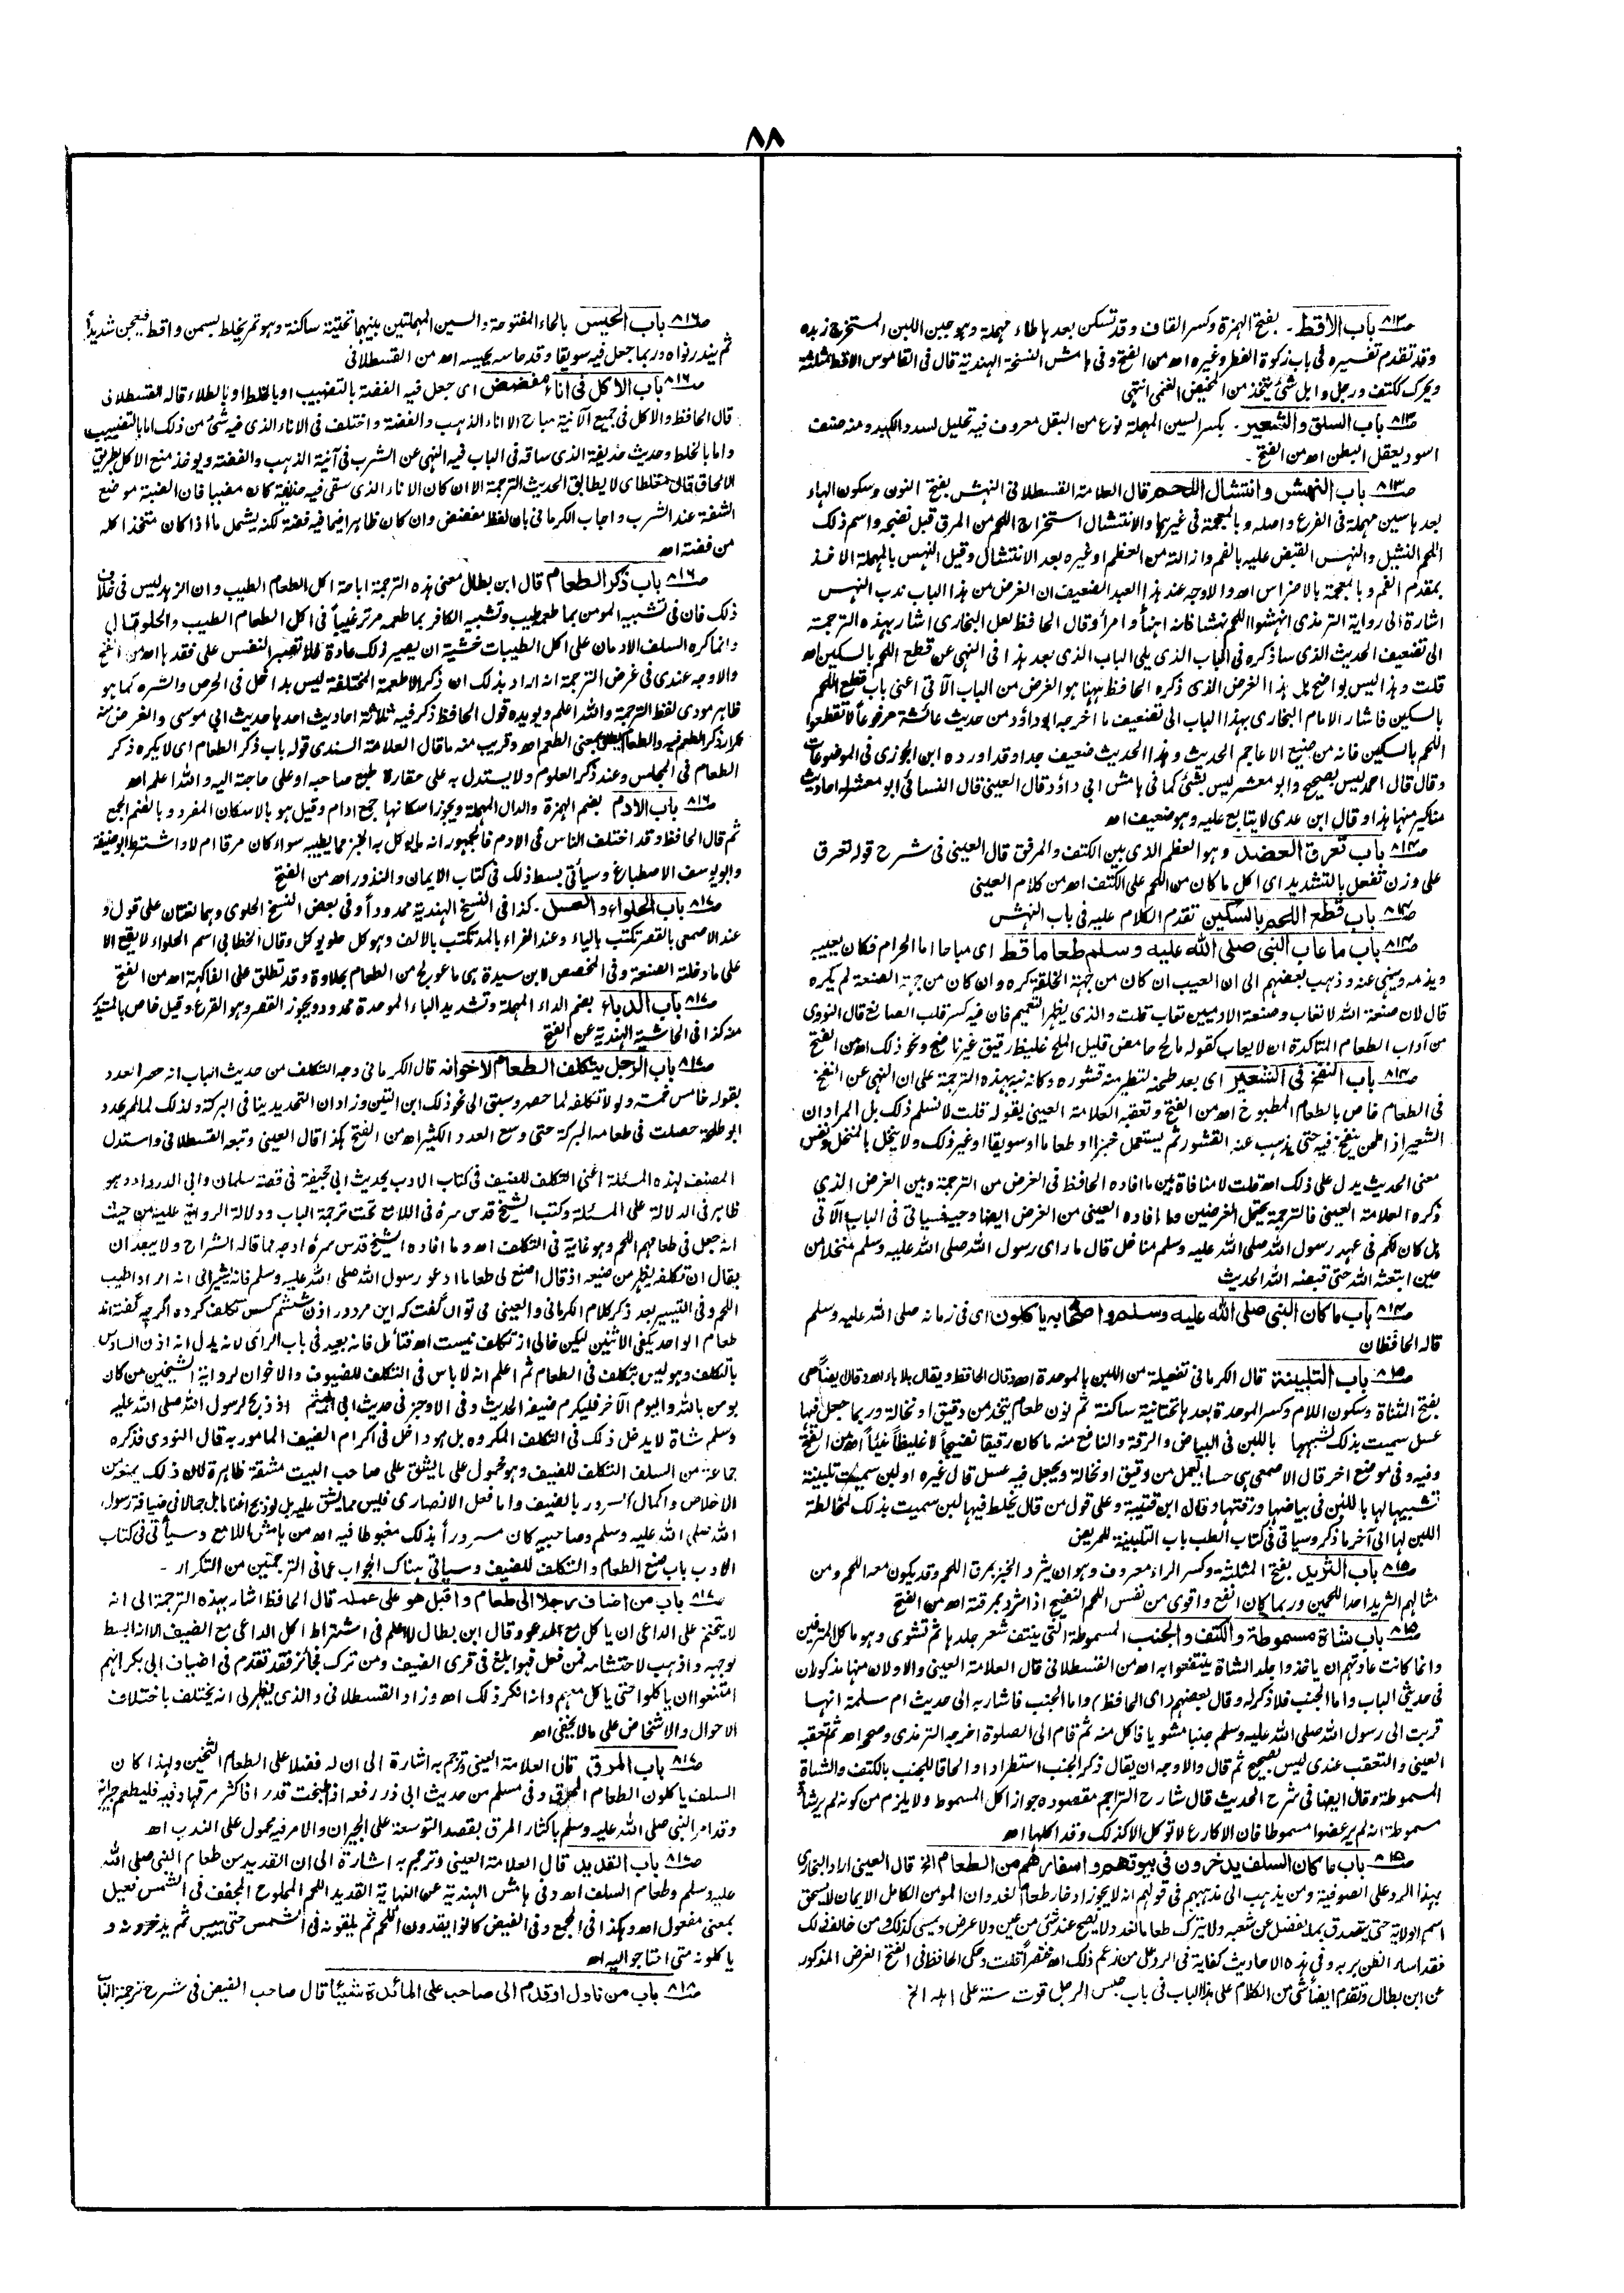 ٨٨
ص٨١٣ باب الاقط ـ بفتح الهمزة وكسر القاف وقد تسكن بعد ها طاء مهملة وهو جبن اللبن المستخرج زبده
وقد تقدم تفسيره فى باب زكوة الفطر وغيره اه من الفتح وفى هامش النسخة الهندية قال فى القاموس الاقط مثلثة
ويحرك ككتف ورجل وابل شئ يتخذ من المخيض الغنمى انتهى
ص٨١٣ باب السلق والشعير ـ بكسر السين المهملة نوع من البقل معروف فيه تحليل لسدد الكبد ومنه صنف
اسود يعقل البطن اه من الفتح ـ
ص٨١٣ باب النهش وانتشال اللحم قال العلامة القسطلانى النهش بفتح النون وسكون الهاء
بعد ها سين مهملة فى الفرع واصله وبالمعجمة فى غيرهما والانتشال استخراج اللحم من المرق قبل نضجه واسم ذلك
اللحم النشيل والنهس القبض عليه بالفم وازالته من العظم او غيره بعد الانتشال وقيل النهس بالمهملة الاخذ
بمقدم الفم وبالمعجمة بالاضراس اه والاوجه عند هذا العبد الضعيف ان الغرض من هذا الباب ندب النهس
اشارة الى رواية الترمذى انهشوا اللحم نهشا فانه اهنأ وامرأ وقال الحافظ لعل البخارى اشار بهذه الترجمة
الى تضعيف الحديث الذى ساذكره فى الباب الذى يلى الباب الذى بعد هذا فى النهى عن قطع اللحم بالسكين اه
قلت وهذا ليس بواضح بل هذا الغرض الذى ذكره الحافظ ههنا هو الغرض من الباب الآتى اعنى باب قطع اللحم
بالسكين فاشار الامام البخارى بهذا الباب الى تضعيف ما اخرجه ابو داؤد من حديث عائشة مرفوعاً لا تقطعوا
اللحم بالسكين فانه من صنيع الاعاجم الحديث وهذا الحديث ضعيف جدا وقد اورده ابن الجوزى فى الموضوعات
وقال قال احمد ليس بصحيح وابو معشر ليس بشئ كما فى هامش ابى داؤد قال العينى قال النسائى ابو معشر له احاديث
مناكير منها هذا وقال ابن عدى لا يتابع عليه وهو ضعيف اه
ص٨١٤ باب تعرق العضد وهو العظم الذى بين الكتف والمرفق قال العينى فى شرح قوله تعرق
على وزن تفعل بالتشديد اى اكل ما كان من اللحم على الكتف اه من كلام العينى
ص٨١٤ باب قطع اللحم بالسكين تقدم الكلام عليه فى باب النهش
ص٨١٤ باب ما عاب النبى صلى الله عليه وسلم طعاما قط اى مباحا اما الحرام فكان يعيبه
ويذمه وينهى عنه وذهب بعضهم الى ان العيب ان كان من جهة الخلقة كره وان كان من جهة الصنعة لم يكره
قال لان صنعة الله لا تعاب وصنعة الادميين تعاب قلت والذى يظهر التعميم فان فيه كسر قلب الصانع قال النووى
من آداب الطعام المتاكدة ان لا يعاب كقوله مالح حامض قليل الملح غليظ رقيق غير ناضج ونحو ذلك اه من الفتح
ص٨١٤ باب النفخ فى الشعير اى بعد طحنه لتطير منه قشوره وكانه نبه بهذه الترجمة على ان النهى عن النفخ
فى الطعام خاص بالطعام المطبوخ اه من الفتح وتعقبه العلامة العينى بقوله قلت لا نسلم ذلك بل المراد ان
الشعير اذا طحن ينفخ فيه حتى يذهب عنه القشور ثم يستعمل خبزا او طعاما او سويقا او غير ذلك ولا ينخل بالمنخل ونفس
معنى الحديث يدل على ذلك اه قلت لا منافاة بين ما افاده الحافظ فى الغرض من الترجمة وبين الغرض الذى
ذكره العلامة العينى فالترجمة يحتمل الغرضين وما افاده العينى من الغرض ايضا وجيه فسياتى فى الباب الآتى
هل كان لكم فى عهد رسول الله صلى الله عليه وسلم مناخل قال ما رأى رسول الله صلى الله عليه وسلم منخلا من
حين ابتعثه الله حتى قبضه الله الحديث
ص٨١٤ باب ما كان النبى صلى الله عليه وسلم واصحابه ياكلون اى فى زمانه صلى الله عليه وسلم
قاله الحافظان
ص٨١٥ باب التلبينة قال الكرمانى تفعيلة من اللبن بالموحدة اه وقال الحافظ ويقال بلا هاء اه وقال ايضاً هى
بفتح المثناة وسكون اللام وكسر الموحدة بعد ها تحتانية ساكنة ثم نون طعام يتخذ من دقيق او نخالة وربما جعل فيها
عسل سميت بذلك لشبهها باللبن فى البياض والرقة والنافع منه ما كان رقيقا نضيجاً لا غليظاً نيئاً اه من الفتح
وفيه وفى موضع آخر قال الاصمعى هى حساء يعمل من دقيق او نخالة ويجعل فيه عسل قال غيره او لبن سميت تلبينة
تشبيها لها باللبن فى بياضها ورقتها وقال ابن قتيبة وعلى قول من قال يخلط فيها لبن سميت بذلك لمخالطة
اللبن لها الى آخر ما ذكر وسياتى فى كتاب الطب باب التلبينة للمريض
ص٨١٥ باب الثريد بفتح المثلثة وكسر الراء معروف وهو ان يثرد الخبز بمرق اللحم وقد يكون معه اللحم ومن
امثالهم الثريد احد اللحمين وربما كان انفع واقوى من نفس اللحم النضيج اذا ثرد بمرقته اه من الفتح
ص٨١٥ باب شاة مسموطة والكتف والجنب المسموطة التى ينتف شعر جلدها ثم تشوى وهو ماكل المترفين
وانما كانت عادتهم ان ياخذوا جلد الشاة ينتفعوا به اه من القسطلانى قال العلامة العينى والاولان منها مذكوران
فى حديثى الباب واما الجنب فلا ذكر له وقال بعضهم (اى الحافظ) واما الجنب فاشار به الى حديث ام سلمة انها
قربت الى رسول الله صلى الله عليه وسلم جنبا مشويا فاكل منه ثم قام الى الصلوة اخرجه الترمذى وصححه اه ثم تعقبه
العينى والتعقب عندى ليس بصحيح ثم قال والاوجه ان يقال ذكر الجنب استطرادا والحاقا للجنب بالكتف والشاة
المسموطة وقال ايضا فى شرح الحديث قال شارح التراجم مقصوده جواز اكل المسموط ولا يلزم من كونه لم ير شاة
مسموطة انه لم ير عضوا مسموطا فان الاكارع لا توكل الا كذلك وقد اكلها اه
ص٨١٥ باب ما كان السلف يدخرون فى بيوتهم واسفارهم من الطعام الخ قال العينى اراد البخارى
بهذا الرد على الصوفية ومن يذهب الى مذهبهم فى قولهم انه لا يجوز ادخار طعام لغد وان المومن الكامل الايمان لا يستحق
اسم الولاية حتى يتصدق بما يفضل عن شبعه ولا يترك طعاما لغد ولا يصبح عنده شئ من عين ولا عرض ويمسى كذلك ومن خالف ذلك
فقد اساء الظن بربه وفى هذه الاحاديث كفاية فى الرد على من زعم ذلك اه مختصراً قلت وحكى الحافظ فى الفتح الغرض المذكور
عن ابن بطال وتقدم ايضاً شئ من الكلام على هذا الباب فى باب حبس الرجل قوت سنة على اهله الخ
ص٨١٦ باب الحيس بالحاء المفتوحة والسين المهملتين بينهما تحتية ساكنة وهو تمر يخلط بسمن واقط فيعجن شديداً
ثم يندر نواه وربما جعل فيه سويقا وقد حاسه يحيسه اه من القسطلانى
ص٨١٦ باب الاكل فى اناء مفضض اى جعل فيه الفضة بالتضبيب او بالخلط او بالطلاء قاله القسطلانى
قال الحافظ والاكل فى جميع الآنية مباح الا اناء الذهب والفضة واختلف فى الاناء الذى فيه شئ من ذلك اما بالتضبيب
واما بالخلط وحديث حذيفة الذى ساقه فى الباب فيه النهى عن الشرب فى آنية الذهب والفضة ويوخذ منع الاكل بطريق
الالحاق قال مغلطاى لا يطابق الحديث الترجمة الا ان كان الاناء الذى سقى فيه حذيفة كان مضببا فان الضبة موضع
الشفة عند الشرب واجاب الكرمانى بان لفظ مفضض وان كان ظاهرا فيما فيه فضة لكنه يشمل ما اذا كان متخذا كله
من فضة اه
ص٨١٦ باب ذكر الطعام قال ابن بطال معنى هذه الترجمة اباحة اكل الطعام الطيب وان الزهد ليس فى خلاف
ذلك فان فى تشبيه المومن بما طعمه طيب وتشبيه الكافر بما طعمه مر ترغيباً فى اكل الطعام الطيب والحلو قال
وانما كره السلف الادمان على اكل الطيبات خشية ان يصير ذلك عادة فلا تصبر النفس على فقدها اه من الفتح
والاوجه عندى فى غرض الترجمة انه اراد بذلك ان ذكر الاطعمة المختلفة ليس بداخل فى الحرص والشره كما هو
ظاهر مودى لفظ الترجمة والله اعلم ويويده قول الحافظ ذكر فيه ثلاثة احاديث احدها حديث ابى موسى والغرض منه
تكرار ذكر الطعم فيه والطعام يطلق بمعنى الطعم اه وقريب منه ما قال العلامة السندى قوله باب ذكر الطعام اى لا يكره ذكر
الطعام فى المجلس وعند ذكر العلوم ولا يستدل به على حقارة طبع صاحبه او على حاجته اليه والله اعلم اه
ص٨١٦ باب الادم بضم الهمزة والدال المهملة ويجوز اسكانها جمع ادام وقيل هو بالاسكان المفرد وبالضم الجمع
ثم قال الحافظ وقد اختلف الناس فى الادم فالجمهور انه ما يوكل به الخبز مما يطيبه سواء كان مرقا ام لا واشترط ابو حنيفة
وابو يوسف الاصطباغ وسيأتى بسط ذلك فى كتاب الايمان والنذور اه من الفتح
ص٨١٧ باب الحلواء والعسل ـ كذا فى النسخ الهندية ممدوداً وفى بعض النسخ الحلوى وهما لغتان على قول و
عند الاصمعى بالقصر تكتب بالياء وعند الفراء بالمد تكتب بالالف وهو كل حلو يوكل وقال الخطابى اسم الحلواء لا يقع الا
على ما دخلته الصنعة وفى المخصص لابن سيدة هى ما عولج من الطعام بحلاوة وقد تطلق على الفاكهة اه من الفتح
ص٨١٧ باب الدباء بضم الدال المهملة وتشديد الباء الموحدة ممدود ويجوز القصر وهو القرع وقيل خاص بالمستدير
منه كذا فى الحاشية الهندية عن الفتح
ص٨١٧ باب الرجل يتكلف الطعام لاخوانه قال الكرمانى وجه التكلف من حديث الباب انه حصر العدد
بقوله خامس خمسة ولو لا تكلفه لما حصر وسبق الى نحو ذلك ابن التين وزاد ان التحديد ينافى البركة ولذلك لما لم يحدد
ابو طلحة حصلت فى طعامه البركة حتى وسع العدد الكثير اه من الفتح هكذا قال العينى وتبعه القسطلانى واستدل
المصنف لهذه المسئلة اعنى التكلف للضيف فى كتاب الادب بحديث ابى جحيفة فى قصة سلمان وابى الدرداء وهو
ظاهر فى الدلالة على المسئلة وكتب الشيخ قدس سره فى اللامع تحت ترجمة الباب ودلالة الرواية عليه من حيث
انه جعل فى طعامهم اللحم وهو غاية فى التكلف اه وما افاده الشيخ قدس سره اوجه مما قاله الشراح ولا يبعد ان
يقال ان تكلفه يظهر من صنيعه اذ قال اصنع لى طعاما ادعو رسول الله صلى الله عليه وسلم فانه يشير الى انه اراد اطيب
اللحم وفى التيسير بعد ذكر كلام الكرمانى والعينى مى تواں گفت كه اين مرد در اذن ششم كس تكلف كرده اگرچه گفته اند
طعام الواحد يكفى الاثنين ليكن خالى از تكلف نيست اه فتأمل فانه بعيد فى باب الرائ لانه يدل انه اذن السادس
بالتكلف وهو ليس بتكلف فى الطعام ثم اعلم انه لا باس فى التكلف للضيوف والاخوان لرواية الشيخين من كان
يومن بالله واليوم الآخر فليكرم ضيفه الحديث وفى الاوجز فى حديث ابى الهيثم اذ ذبح لرسول الله صلى الله عليه
وسلم شاة لا يدخل ذلك فى التكلف المكروه بل هو داخل فى اكرام الضيف المامور به قال النووى فذكره
جماعة من السلف التكلف للضيف وهو محمول على ما يشق على صاحب البيت مشقة ظاهرة لان ذلك يمنعه من
الاخلاص واكمال السرور بالضيف واما فعل الانصارى فليس مما يشق عليه بل لو ذبح اغناما بل جمالا فى ضيافة رسول
الله صلى الله عليه وسلم وصاحبيه كان مسروراً بذلك مغبوطا فيه اه من هامش اللامع وسيأتى فى كتاب
الادب باب صنع الطعام والتكلف للضيف وسياتى هناك الجواب عما فى الترجمتين من التكرار ـ
ص٨١٧ باب من اضاف رجلا الى طعام واقبل هو على عمله قال الحافظ اشار بهذه الترجمة الى انه
لا يتحتم على الداعى ان ياكل مع المدعو وقال ابن بطال لا اعلم فى اشتراط اكل الداعى مع الضيف الا انه ابسط
لوجهه واذهب لاحتشامه فمن فعل فهو ابلغ فى قرى الضيف ومن ترك فجائز فقد تقدم فى اضياف ابى بكر انهم
امتنعوا ان ياكلوا حتى ياكل معهم وانه انكر ذلك اه وزاد القسطلانى والذى يظهر لى انه يختلف باختلاف
الاحوال والاشخاص على ما لا يخفى اه
ص٨١٧ باب المرق قال العلامة العينى وترجم به اشارة الى ان له فضلا على الطعام الثخين ولهذا كان
السلف ياكلون الطعام المرق وفى مسلم من حديث ابى ذر رفعه اذا طبخت قدرا فاكثر مرقها وفيه فليطعم جيرانه
وقد امر النبى صلى الله عليه وسلم باكثار المرق بقصد التوسعة على الجيران والامر فيه محمول على الندب اه
ص٨١٧ باب القديد قال العلامة العينى وترجم به اشارة الى ان القديد من طعام النبى صلى الله
عليه وسلم وطعام السلف اه وفى هامش الهندية عن النهاية القديد اللحم المملوح المجفف فى الشمس فعيل
بمعنى مفعول اه وهكذا فى المجمع وفى الفيض كانوا يقددون اللحم ثم يلقونه فى الشمس حتى ييبس ثم يدخرونه و
ياكلونه متى احتاجوا اليه اه
ص٨١٨ باب من ناول او قدم الى صاحبه على المائدة شيئا قال صاحب الفيض فى شرح ترجمة الباب